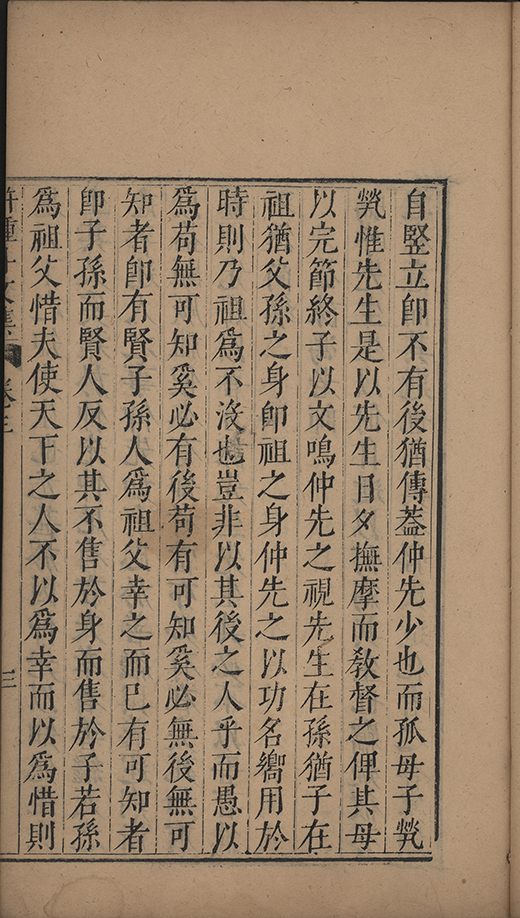 自竪立卽不有後猶傳蓋仲先少也而孤母子煢
煢惟先生是以先生日夕撫摩而敎督之俾其母
以完節終子以文鳴仲先之視先生在孫猶子在
祖猶父孫之身卽祖之身仲先之以功名嚮用於
時則乃祖爲不沒也豈非以其後之人乎而愚以
爲苟無可知奚必有後苟有可知奚必無後無可
知者卽有賢子孫人爲祖父幸之而已有可知者
卽子孫而賢人反以其不售於身而售於子若孫
爲祖父惜夫使天下之人不以爲幸而以爲惜則
卷三
三